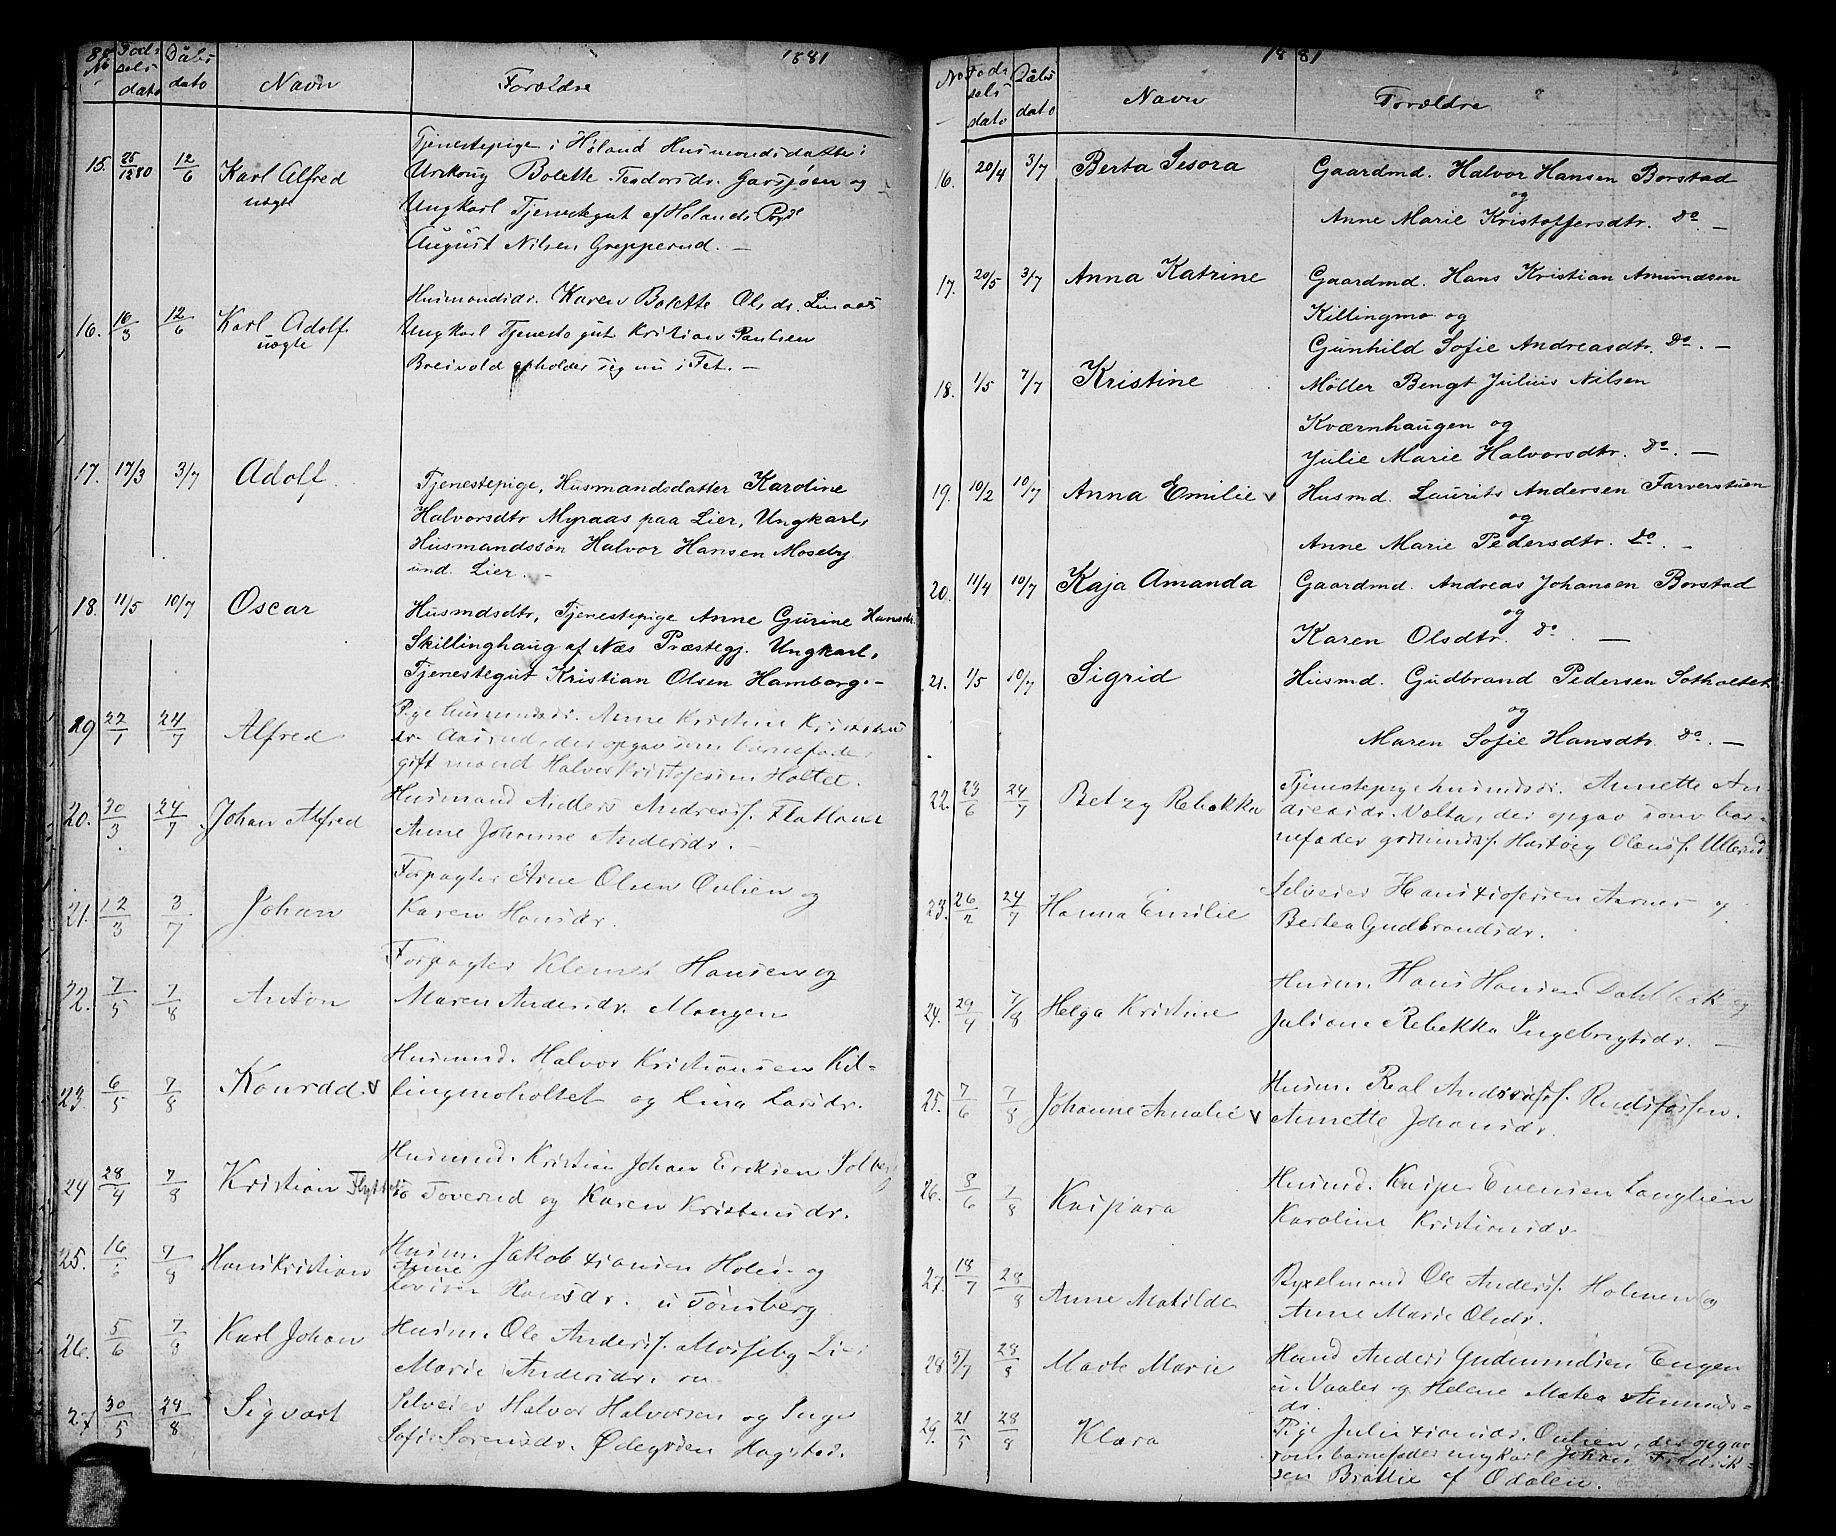 88 1881
No Fødselsdato Dåbsdato Navn Forældre
15. 25/12 80 12/6 Karl Alfred uægte
Tjenestepige i Høland Husmandsdatter i
Urskoug Bolette Teodorsdr. og
Ungkarl Tjenestegut af Hølands Prgd
August Nilsen Grepperud. —
16. 16/3 12/6 Karl Adolf uægte
Husmandsdr. Karen Bolette Olsdr.
Ungkarl Tjenestegut Kristian Paulsen
Breivold opholder sig nu i Fet. —
17. 17/3 3/7 Adolf
Tjenestepige, Husmandsdatter Karoline
Halvorsdtr Myraas paa Lier, Ungkarl,
Husmandssøn Halvor Hansen Moseby
und. Lier. —
18. 11/5 10/7 Oscar
Husmdsdtr, Tjenestepige Anne Gurine Hansdtr
Skillinghaug af Næs Præstegj. Ungkarl,
Tjenestegut Kristian Olsen Hamborg. —
19 22/1 24/7 Alfred
Pige husmndsdr. Anne Kristine
dr. Aasrud, der opgav som barnefader
gift mand Halvor Kristofersen Holtet.
20. 30/3 24/7 Johan Alfred
Husmand Anders Andreass.
Anne Johanne Andersdr. —
21. 12/3 3/7 Johan
Forpagter Arne Olsen Oulien og
Karen Hansdr.
22. 7/5 7/8 Anton
Forpagter Klemet Hansen og
Maren Andersdr. Mangen
23. 6/5 7/8 Konrad v
Husmnd. Halvor Kristiansen Kil-
lingmoholtet og Lina Larsdr.
24 28/4 7/8 Kristian Flyttet
Husmnd. Kristian Johan Eriksen Solberg
to Toverud og Karen Kristensdr.
25. 16/ 7/8 Hans Kristian
Husm. Jakob Hansen og
Anne Lovise Hansdr. u Tønsberg
26. 5/6 7/8 Karl Johan
Husm. Ole Anderss. Mosseby Lier
Marie Andersdr.
27 30/5 28/8 Sigvart
Selveier Halvor Halvorsen og Inger
Sofie Sørensdr. Ødegården Hogstad.
1881
No Fødselsdato Dåbsdato Navn Forældre
16. 20/4 3/7 Berta Sesora
Gaardmd. Halvor Hansen Borstad
og
Anne Marie Kristoffersdtr. Do. —
17. 20/5 3/7 Anna Katrine
Gaardmd. Hans Kristian Amundsen
Killingmo og
Gunhild Sofie Andreasdtr. Do. —
18. 1/5 7/7 Kristine
Møller Bengt Julius Nilsen
Kværnhaugen og
Julie Marie Halvorsdtr. Do. —
19. 10/2 10/7 Anna Emilie v
Husmd. Laurits Andersen Farverstuen
og
Anne Marie Pedersdtr. Do. —
20. 11/4 10/7 Kaja Amanda
Gaardmd. Andreas Johansen Borstad
og
Karen Olsdtr. Do. —
21. 1/5 10/7 Sigrid
Husmd. Gudbrand Pedersen Sotholtet
og
Maren Sofie Hansdtr. Do. —
22. 23/6 24/7 Betzy Rebekka
Tjenestepige husmdsdr. Annette An-
dreasdr. Valta, der opgav som bar-
nefader grdmnds. Hartvig Olaus. Ullerud
23. 26/2 24/7 Hanna Emilie
Selveier Hans Aarnes og
Bertea Gudbrandsdr.
24. 29/4 7/8 Helga Kristine
Husm. Hans Hansen Dahlbak og
Juliane Rebekka Ingebrigtsdr. —
25. 7/6 7/8 Johanne Amalie v
Husm. Roal Andreass. Rudsfossen.
Annette Johansdr.
26. 8/6 7/8 Kaspara
Husmd. Kasper Evensen Langlien
Karoline Kristiansdr
27. 18/7 28/8 Anne Matilde
Bygselmand Ole Anderss. Holmen og
Anne Marie Olsdr.
28 5/7 28/8 Marte Marie
Hand. Anders Gudmundsen Engen
u. Vaaler og Helene Matea Amunds-
dr.
29. 21/5 28/8 Klara
Pige Julie Oulien, der opgav
som barnefader ungkarl Johan Fredrik-
sen Bråttie af Odalen.